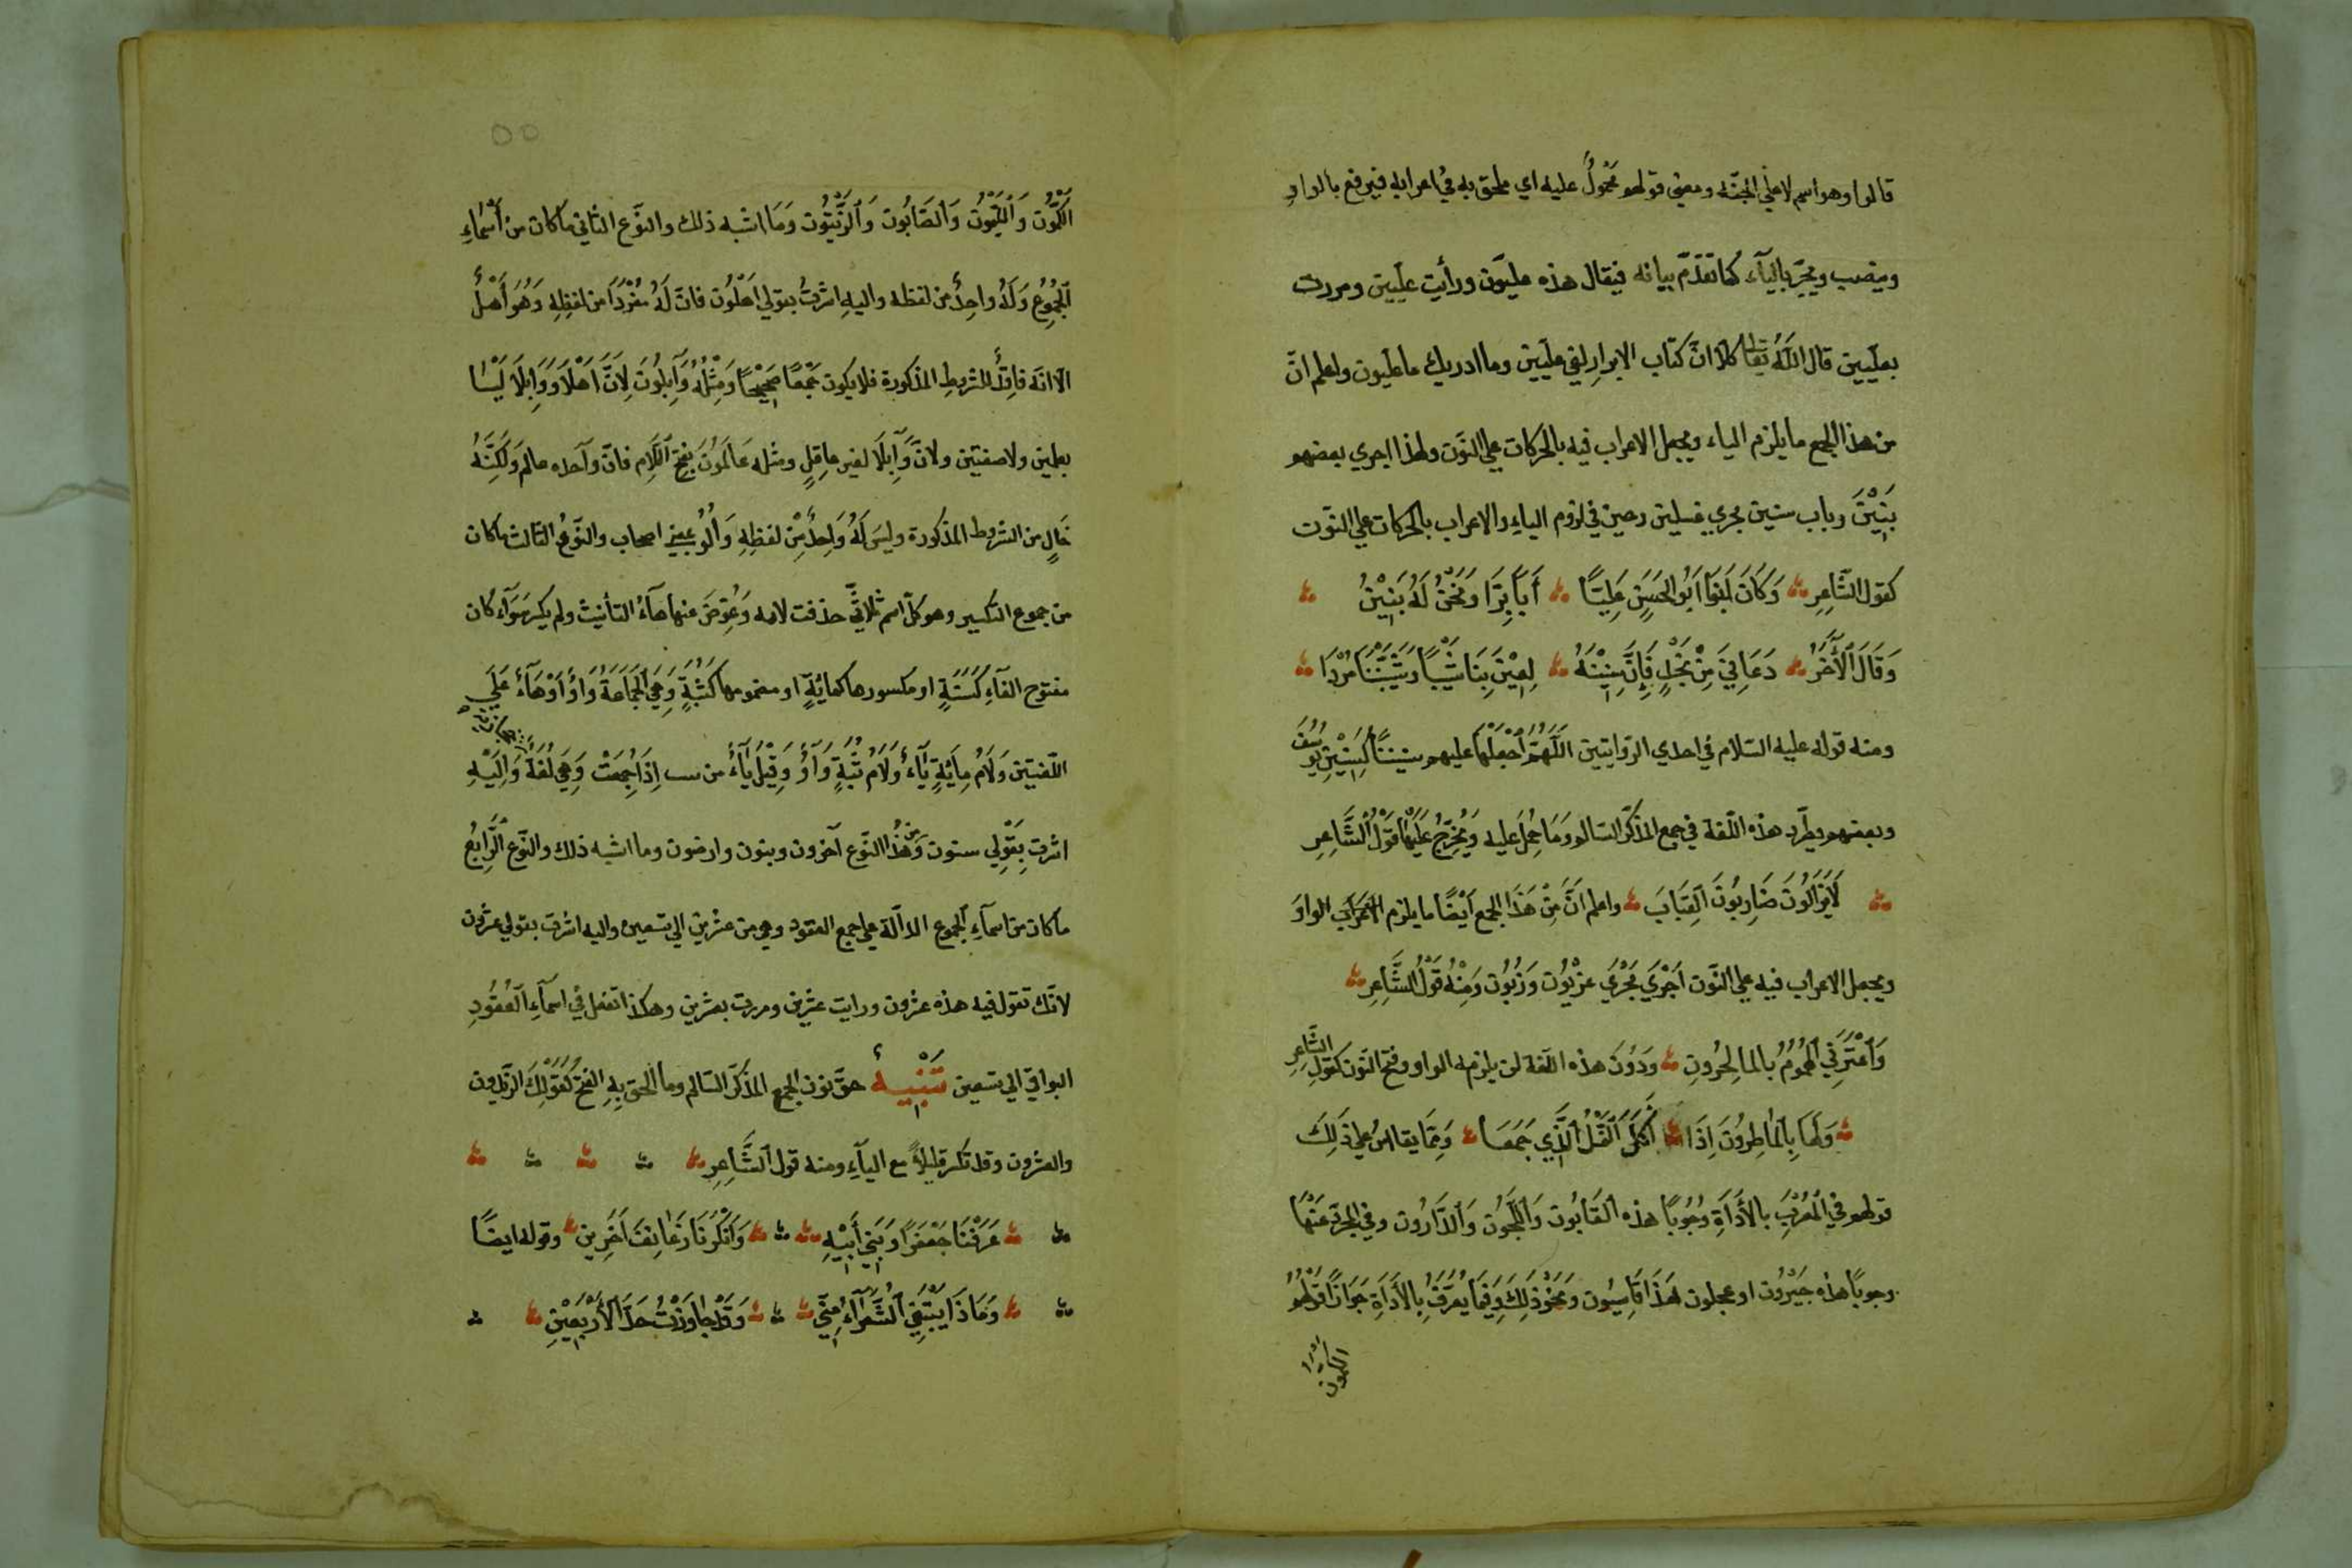 قالوا وهو اسم لاعلي الجنّة ومعني قولهو محْمُولٌ عليه اي ملحق به في اعرابه فيرفع بالواوِ
وينصب ويجرّ باليآء كما تقدّم بيانه فيقال هذه علّيّون ورأيت علّيين ومررت
بعلّيين قال اللهُ تعالي كلّا انّ كتاب الابرارِ لفي علّيين وما ادريك ما علّيون واعلم انّ
من هذا الجمع ما يلزم الياء ويجعل الاعراب فيه بالحركات علي النّون ولهذا اجري بعضهو
بَنِيْنَ وباب سنين مجري غسلين وحين في لزوم الياءِ والاعراب بالحركات علي النّون
كقول الشّاعِرِ وَكَانَ لَنَوا اَبُو الحَسَنِ عَلِيّاً أَباً بَرّا وَنَحْنُ لَهُ بَنِيْنُ
وَقَالَ ٱلأَٓخَرُ دَعَانِيَ مِنْ نَجْدٍ فَإِنَّ سِنِيْنَهُ لِعِبْنَ بِنَا شِيْباً وَشَيَّبْنَنَا مُرْدَا
ومنه قوله عليه السّلام في احدي الرّوايتين اللّهُمَّ ٱجْعَلْهَا عليهمو سنيناً كَسِنِيْنِ يُوسُفَ
وبعضهمو يطّرد هذه اللّغة في جمع المذكّر السّالم وَمَا حُمِلَ عليه وَيُخرَّجُ عَلَيْهَا قَوْلُ ٱلشَّاعِرِ
لَايَزَالُونَ ضَارِبُونَ القِبَابَ واعلم اَنَّ مِنْ هَذَا الجمع اَيْضًا ما يلزم الواوَ
ويجعل الاعراب فيه علي النّون اجْرِيَ مَجْرَيَ عرْبُون وَزَبُون وَمِنْهُ قَوْلُ الشَّاعِرِ
وَٱعْتَرَتْنِي ٱلهُمُومُ بالمالِحُرُونِ وَدُونَ هذه اللّغة لن يلزمه الواو وفتح النّون كقولِ الشَّاعِرِ
وَلَهَا بِٱلمَاطِرُونَ اِذَا أكَلَ ٱلنَّمْلُ ٱلَّذِي جَمَعَا وَمِمَّا يقاس علي ذَلِكَ
قولهمو في المُعَرَّبِ بالأَدَاةِ وُجُوباً هذه القَابُون وَاللَّجُون وَالدّارُون وفي المجرّد عَنْهَا
وجوباً هذه جَيْرُون او عجلون هَذَا قَاسِيُون وَنَحْوُ ذَلِكَ وَفِيمَا يُعَرَّفُ بِالأَدَاةِ جَوَازًا قَوْلُهُمُو
الكمّون
٥٥
الكَمّوُن وَٱللَّيْمُون وَالصَّابُون وَٱلزَّيْتُون وَمَا اشبه ذلك والنّوع الثاني ما كان من أَسْمَاءِ
ٱلجُمُوعِ وَلَهُ واحِدٌ من لفظه واليهِ اشرْتُ بقولي اَهْلُون فانّ لَهُ مُفْرَدَاً من لفظِهِ وَهُوَ أَهْلٌ
الّا انّه فاقِدٌ للشّروطِ المذكورة فلا يكون جَمْعًا صَحِيْحًا وَمِثْلُهُ وَٓابِلُونَ لِاَنَّ اَهْلَا وَوَابِلَا لَيْسَا
بعلمين ولاصفتين ولانّ وَٓابِلَا لغير عاقِلٍ ومثله عَالَمُونَ بفتح ٱللّاَمِ فانّ وٓاحده عالم وَلَكِنَّهُ
خَالٍ من الشّروط المذكورة وليس لَهُ وَاحِدٌ مِّنْ لفظِهِ وَاُلُو بمعني اصحاب والنّوعُ الثّالث ما كان
من جموع التكسير وهو كلّ اسم ثلاثيّ حذفت لامه وَعُوِّضَ عنها هآءُ التأنيث ولم يكسر سَوَآء كان
مفتوح الفآءِ كَسَنَةٍ او مكسورها كمائةٍ او مضمومها كَثُبَةٍ وَهِيَ الجَمَاعَةُ وَاوٌ اَوْ هَآءٌ عَلَي
اللّغتين وَلَامُ مِائَةٍ يَاءٌ وَلَامُ ثُبَةٍ وَآوٌ وَقِيْلَ يَآءٌ من ... اِذَا جُمِعَتْ وَهِيَ لُغَةٌ وَاِلَيْهِ
اشرت بِقَوْلِي سنون وَمن هٰذُا النّوع آخرون وبنون وارضون وما اشبه ذلك والنّوع الرَّابِعُ
ما كان من اسمآءِ الجموع الدالّة علي جمع العقود وهي من عشرين الي تسعين واليه اشرت بقولي عشرُون
لانّك تقول فيه هذه عشرون ورايت عشرين ومررت بعشرين وهكذا تفعل في اسمآءِ ٱلعُقُودِ
البواقي الي تسعين تَنْبِيهٌ حقّ نون الجمع المذكّر السّالم وما اُلحق بِهِ الفتح كَقَوْلِكَ الزّيدون
والعشرون وقد تكسر قليلاً مع اليآءِ ومنه قول الشَّاعِرِ
عَرَفْنَا جَعْفَرًا وَبَنِيْ أَبِيْهِ وَأَنْكَرْنَا زَعَانِفَ آخَرِينِ وقوله ايضًا
وَمَاذَا يَبْتَغِي الشُّعَرَآءُ مِنِّي وَقَدْ جَاوَزْتُ حَدَّ ٱلأَرْبَعِيْنِ